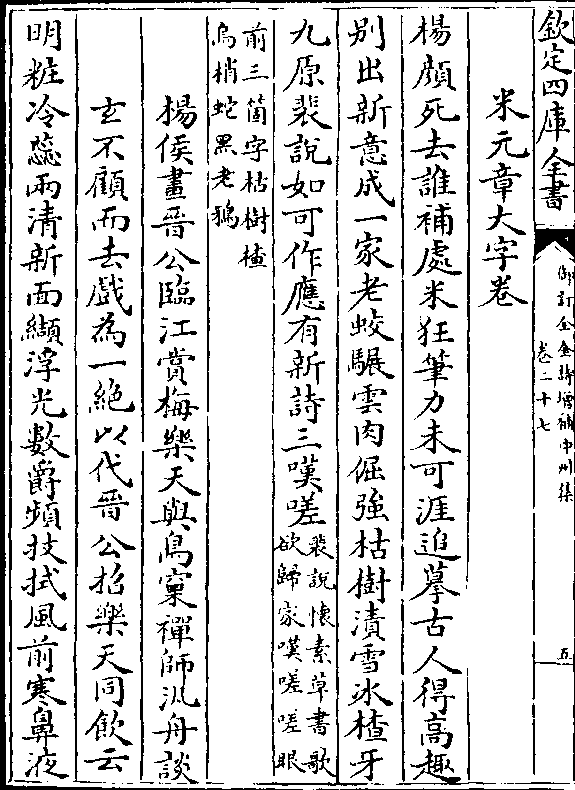 欽定四庫全書
御訂全金詩增補中州集
卷二十七
五
米元章大字卷
楊顔死去誰補處米狂筆力未可涯追摹古人得高趣
别出新意成一家老蛟騣雲肉倔強枯樹漬雪冰楂牙
九原裴說如可作應有新詩三嘆嗟裴說懷素草書歌
欲歸家嘆嗟嗟眼
前三箇字枯樹楂
烏梢蛇黑老鵶
楊侯畫晉公臨江賞梅樂天與鳥窠禪師汎舟談
玄不顧而去戲為一絶以代晉公招樂天同飲云
明粧冷蘂兩清新面纈浮光數爵頻技拭風前寒鼻液